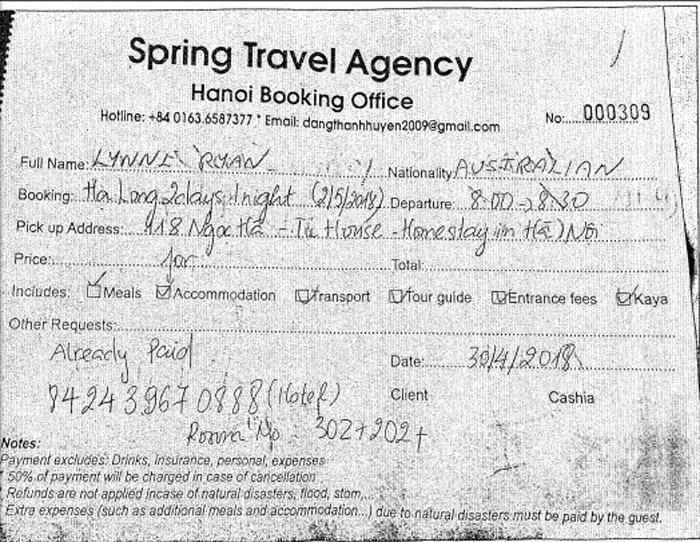 Spring Travel Agency
Hanoi Booking Office
Hotline: +84 0163.6587377 * Email: dangthanhhuyen2009@gmail.com No:.....000309
Full Name: LYNNE RYAN Nationality AUSTRALIAN
Booking: Ha Long 2days 1night (2/5/2018) Departure: 8:00 → 8:30
Pick up Address: 418 Ngọc Hà - Tu House - Homestay in Hà Nội
Price: Total:
Includes: Meals Accommodation Transport Tour guide Entrance fees Kaya
Other Requests:
Already Paid Date: 30/4/2018
842439670888 (Hotel) Client Cashia
Room No : 302+202+
Notes:
Payment excludes: Drinks, Insurance, personal, expenses
* 50% of payment will be charged in case of cancellation
Refunds are not applied incase of natural disasters, flood, stom,...
Extra expenses (such as additional meals and accommodation...) due to natural disasters must be paid by the guest.